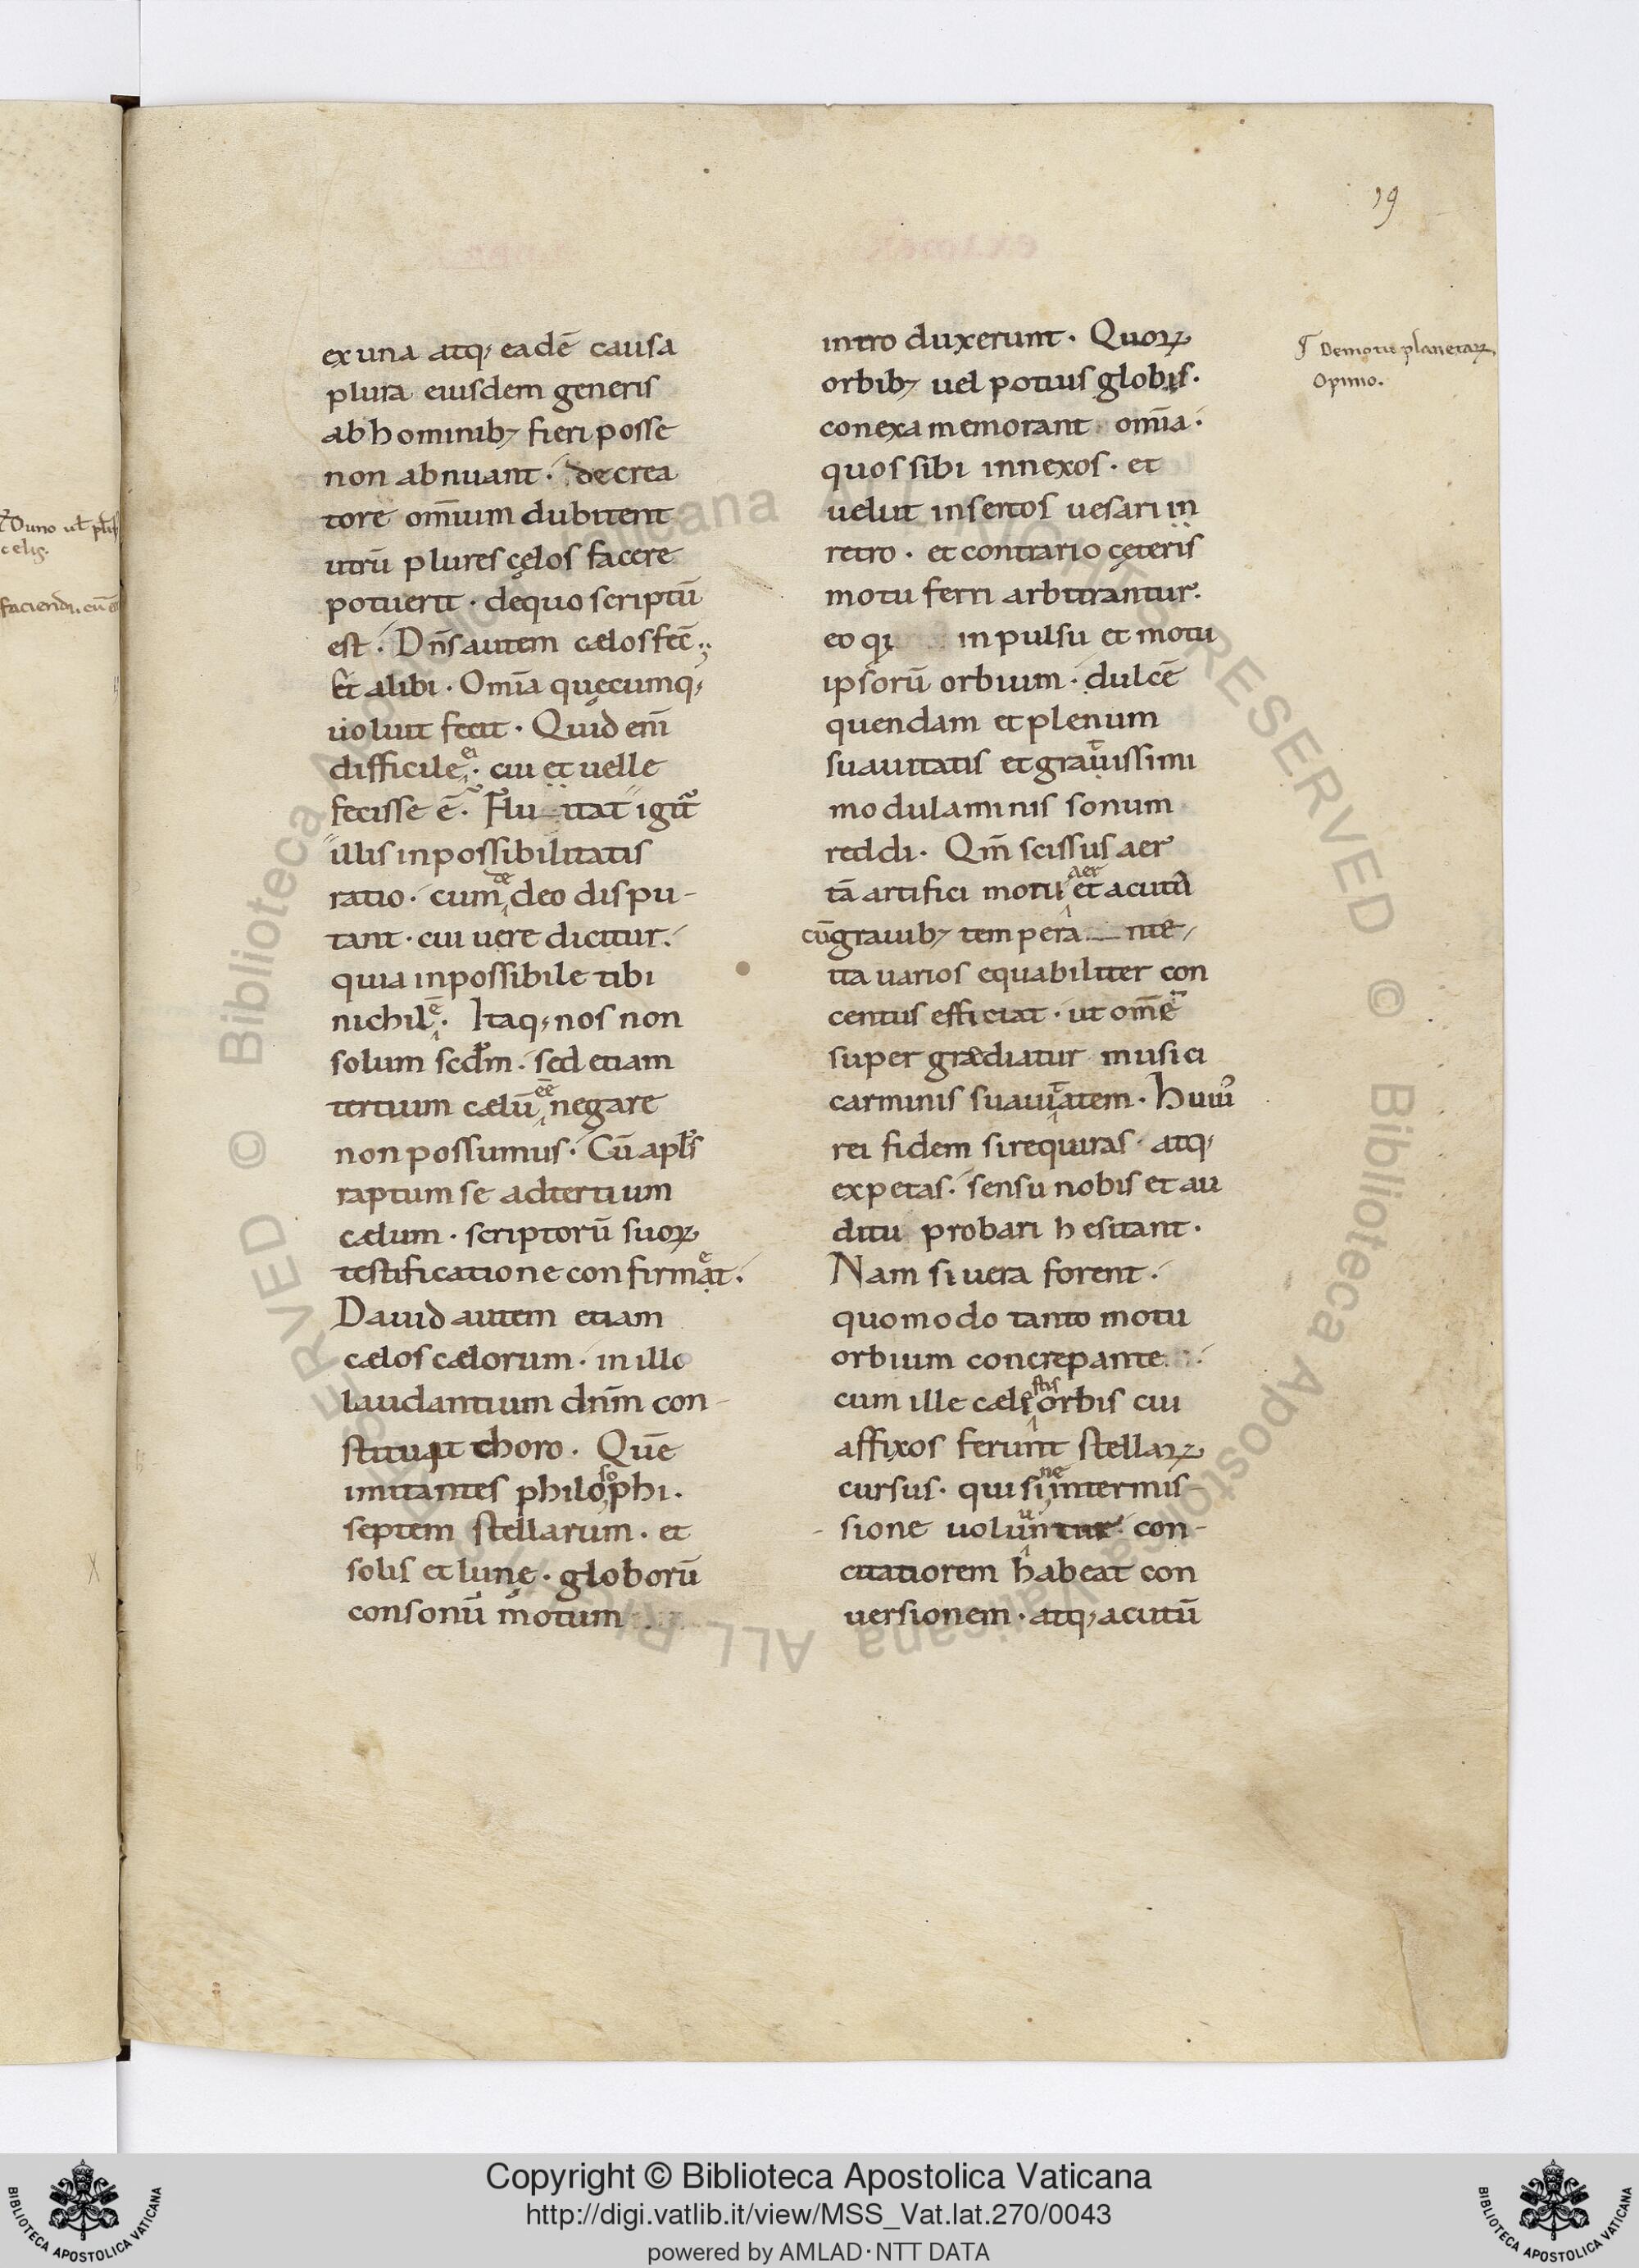 19
ex una atq; eadē causa
plura eiusdem generis
ab hominib; fieri posse
non abnuant · de crea
tore om̄ium dubitent
utrū plures cęlos facere
potuerit · de quo scriptū
est · Dn̄s autem cælos fec̄ ·
Et alibi · Omīa quęcumq;
uoluit fecit · Quid enī
difficile ei · cui et uelle
fecisse ē · Flu itat igit᷑
illis inpossibilitatis
ratio · cum de deo dispu-
tant · cui uere dicitur ·
quia inpossibile tibi
nichil ē · Itaq; nos non
solum scd̄m · sed etiam
tertium cælū ēē negare
non possumus · Cū apl̄s
raptum se ad tertium
cælum · scriptorū suoꝝ
testificatione confirmet ·
Dauid autem etiam
cælos cælorum · in illo
laudantium dn̄m con-
stituit choro · Quē
imitantes philosophi ·
septem stellarum · et
solis et lunę · globorū
consonū motum
intro duxerunt · Quoꝝ
orbib; uel potius globis ·
conexa memorant omīa ·
quos sibi innexos · et
uelut insertos uesari in
retro · et contrario cęteris
motu ferri arbitrantur ·
eo q inpulsu et motu
ipsorū orbium · dulcē
quendam et plenum
suauitatis et grauissimi
modulaminis sonum
reddi · Qm̄ scissus aer
tā artifici motu aer et acutā
cū grauib; tempera nte
ita uarios equabiliter con
centus efficiat · ut om̄ē
super grædiatur musici
carminis suauitatem · Huiuꝰ
rei fidem si requiras · atq;
expetas · sensu nobis et au
ditu probari hesitant ·
Nam si uera forent ·
quomodo tanto motu
orbium concrepante
cum ille cælestis orbis cui
affixos ferunt stellaꝝ
cursus · qui sine intermis-
sione uoluuntur con-
citatiorem habeat con
uersionem · atq; acutū
De motu planetaꝝ
Opinio.
Copyright © Biblioteca Apostolica Vaticana
http://digi.vatlib.it/view/MSS_Vat.lat.270/0043
powered by AMLAD·NTT DATA